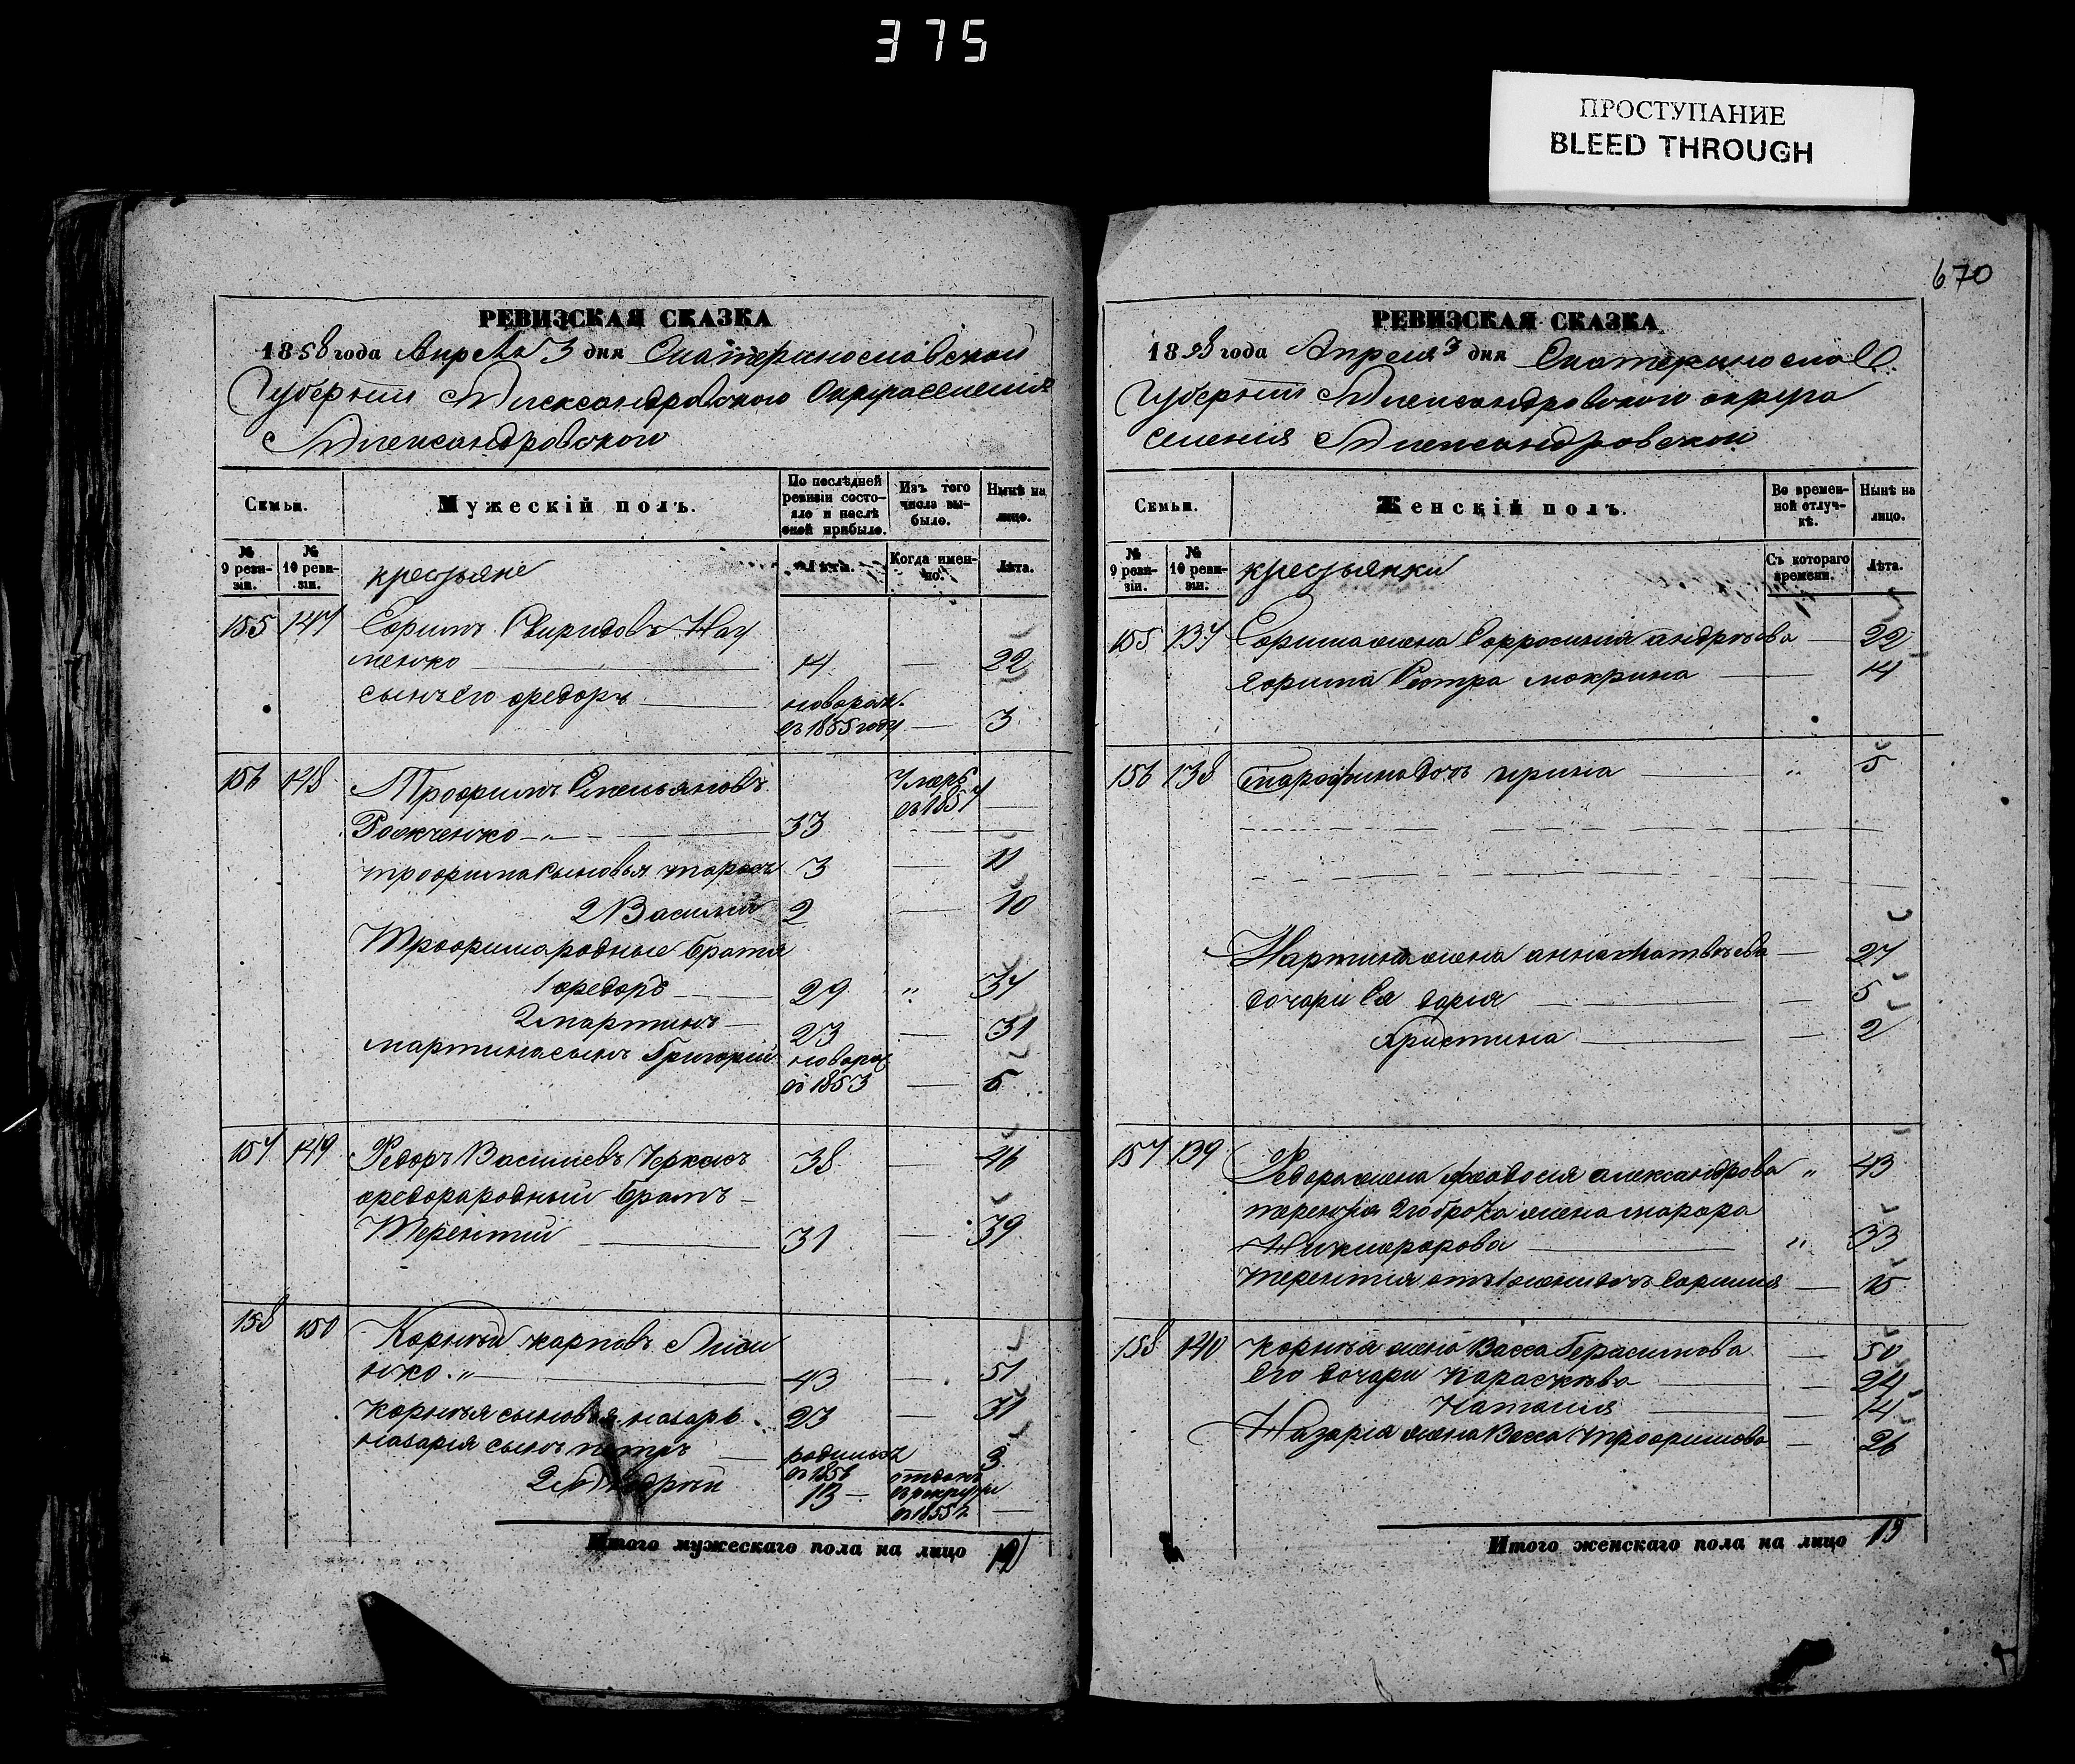 375
ПРОСТУПАНИЕ
BLEED THROUGH
РЕВИЗСКАЯ СКАЗКА
1858 года Апреля 3 дня Екатеринославской
Губернии Александровского Округа селения
Александровского
Семьи.
Мужескій полъ.
По послѣдней ревизіи состояло и послѣ оной прибыло.
Изъ того числа выбыло.
Нынѣ на лицо.
№ 9 ревизіи.
№ 10 ревизіи.
крестьяне
Лѣта.
Когда именно.
Лѣта.
155 147 Ефимъ Свиридовъ Нау
менко 14 22
сынъ его федоръ новорож.
въ 1855 году 3
156 148 Трофимъ Емельяновъ умеръ
въ 1857
33
трофима сыновья тарасъ 3 11
2 Василий 2 10
Трофима родные братья
1 федоръ 29 " 37
2 мартинъ 23 31
мартина сынъ Григорий новорож
въ 1853 5
157 149 Федоръ Васильевъ Черкасъ 38 46
федора родный братъ
Терентий 31 39
158 150 Корней карповъ Лисе
нко " 43 51
корнея сыновья назаръ 23 31
назария сынъ петръ родился
въ 1856 3
2й 13 отданъ
в рекруты
въ 1855 г.
Итого мужескаго пола на лицо 12
670
РЕВИЗСКАЯ СКАЗКА
1858 года Апреля 3 дня Екатеринослав.
Губернии Александровского округа
селения Александровского
Семьи.
Женскій полъ.
Во временной отлучкѣ.
Нынѣ на лицо.
№ 9 ревизіи.
№ 10 ревизіи.
крестьянки
Съ котораго времени.
Лѣта.
155 137 Ефима жена Ефросиния андреева 22
ефима Сестра мокрина 14
156 138 дочь ирина " 5
Мартина жена анна матвеева 27
дочери Ея дария 5
христина 2
157 139 Федора жена феодосия александрова " 43
терентия 2го брака жена марфа
Никифорова " 33
терентия отъ 1 жены дочь ефимия 15
158 140 корнея жена Васса Герасимова 50
Его дочери парасковья 24
Наталия 14
Назария жена Васса трофимова 26
Итого женскаго пола на лицо 13